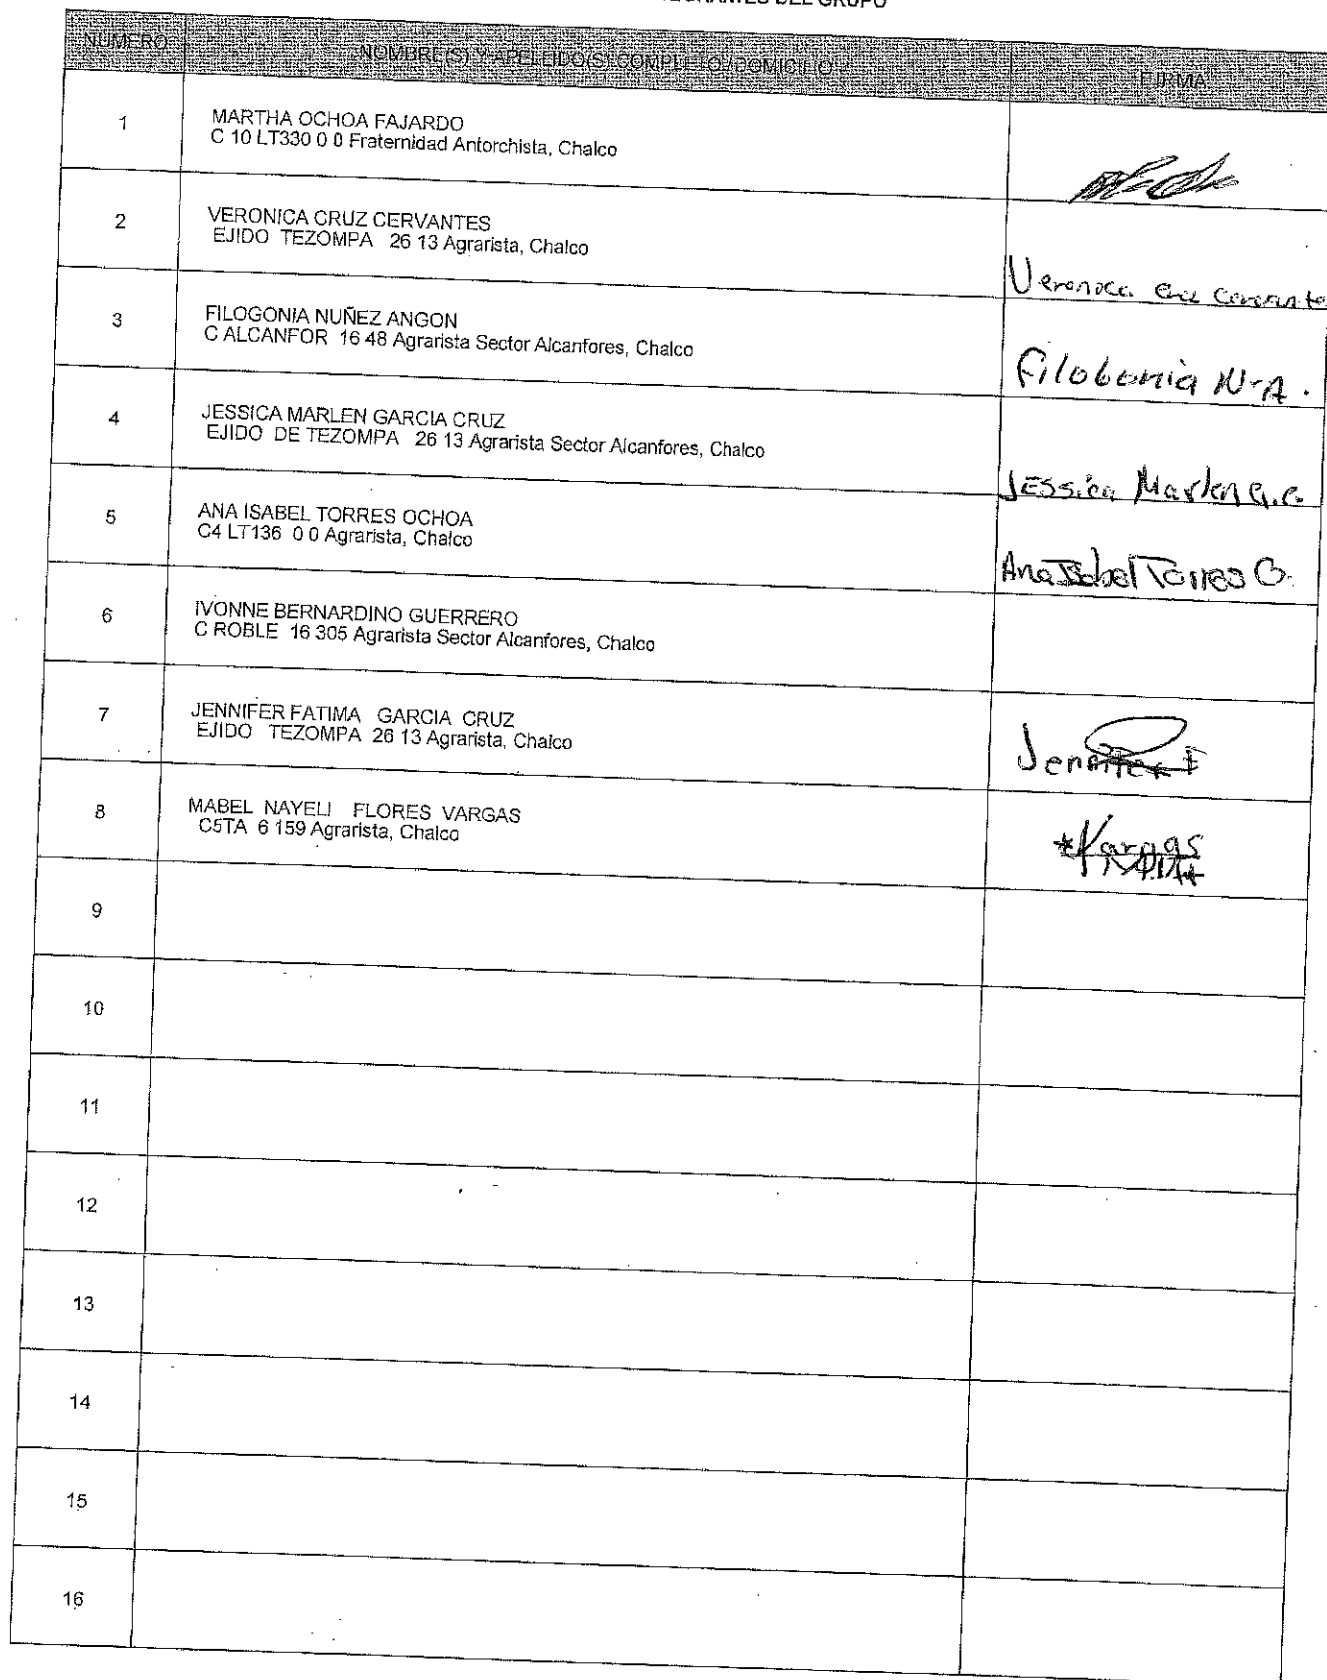 GRANTES DEL GRUPO
NUMERO NOMBRE(S) Y APELLIDO(S) COMPLETO / DOMICILIO FIRMA
1 MARTHA OCHOA FAJARDO
C 10 LT330 0 0 Fraternidad Antorchista, Chalco
2 VERONICA CRUZ CERVANTES
EJIDO TEZOMPA 26 13 Agrarista, Chalco
Veronica
3 FILOGONIA NUÑEZ ANGON
C ALCANFOR 16 48 Agrarista Sector Alcanfores, Chalco
Filobonia N-A.
4 JESSICA MARLEN GARCIA CRUZ
EJIDO DE TEZOMPA 26 13 Agrarista Sector Alcanfores, Chalco
Jessica Marlen G.C.
5 ANA ISABEL TORRES OCHOA
C4 LT136 0 0 Agrarista, Chalco
Ana Isabel Torres O.
6 IVONNE BERNARDINO GUERRERO
C ROBLE 16 305 Agrarista Sector Alcanfores, Chalco
7 JENNIFER FATIMA GARCIA CRUZ
EJIDO TEZOMPA 26 13 Agrarista, Chalco
Jennifer F
8 MABEL NAYELI FLORES VARGAS
C5TA 6 159 Agrarista, Chalco
*Vargas
9
10
11
12
13
14
15
16